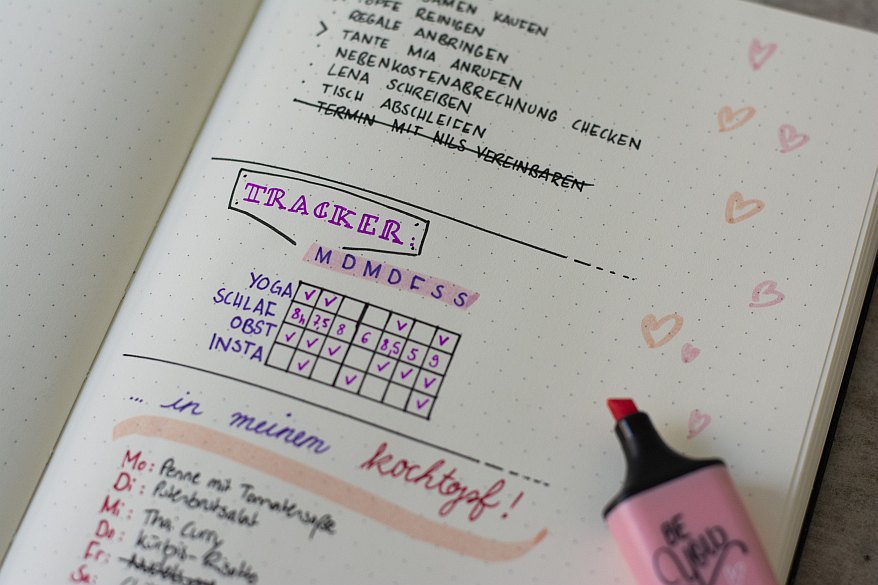 SAMEN KAUFEN
TÖPFE REINIGEN
REGALE ANBRINGEN
> TANTE MIA ANRUFEN
NEBENKOSTENABRECHNUNG CHECKEN
LENA SCHREIBEN
TISCH ABSCHLEIFEN
TERMIN MIT NILS VEREINBAREN
TRACKER:
M D M D F S S
YOGA ✓ ✓ ✓ ✓
SCHLAF 8h 7,5 8 6 8,5 5 9
OBST ✓ ✓ ✓ ✓ ✓ ✓
INSTA ✓ ✓ ✓
... in meinem kochtopf!
Mo: Penne mit Tomatensoße
Di: Putenbrustsalat
Mi: Thai Curry
Do: Kürbis-Risotto
Fr:
Sa:
BE
YOU